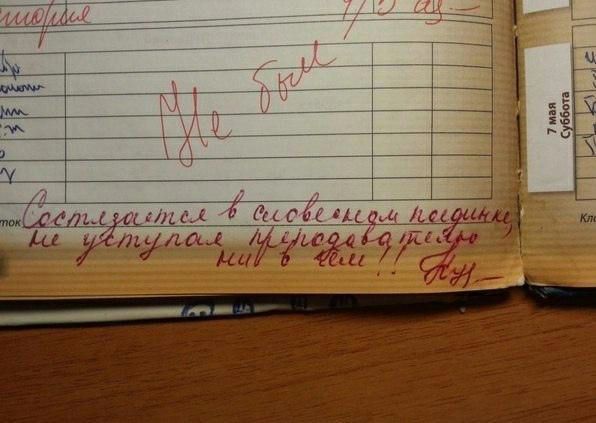 Не был
7 мая
Суббота
Состязается в словесном поединке,
не уступая преподавателю
ни в чём!!